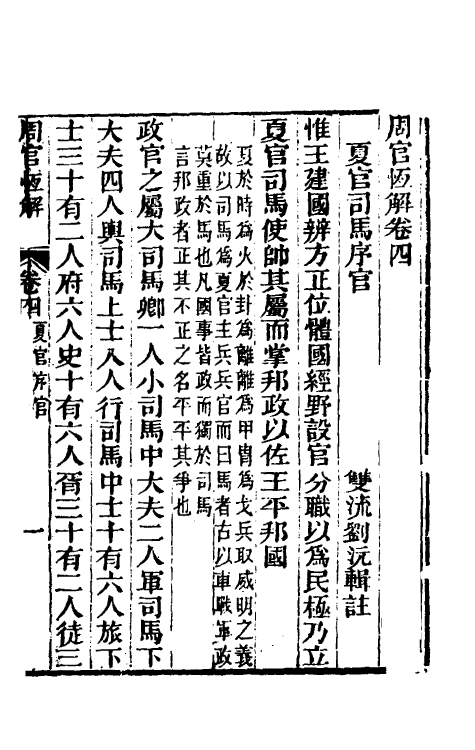 周官恆解卷四
夏官司馬序官　雙流劉沅輯註
惟王建國辨方正位體國經野設官分職以爲民極乃立
夏官司馬使帥其屬而掌邦政以佐王平邦國
夏於時爲火於卦爲離離爲甲冑爲戈兵取威明之義
故以司馬爲夏官主兵兵官而曰馬者古以車戰軍政
莫重於馬也凡國事皆政而獨於司馬
言邦政者正其不正之名平平其爭也
政官之屬大司馬卿一人小司馬中大夫二人軍司馬下
大夫四人輿司馬上士八人行司馬中士十有六人旅下
士三十有二人府六人史十有六人胥三十有二人徒三
周官恆解
卷四
夏官序官
一